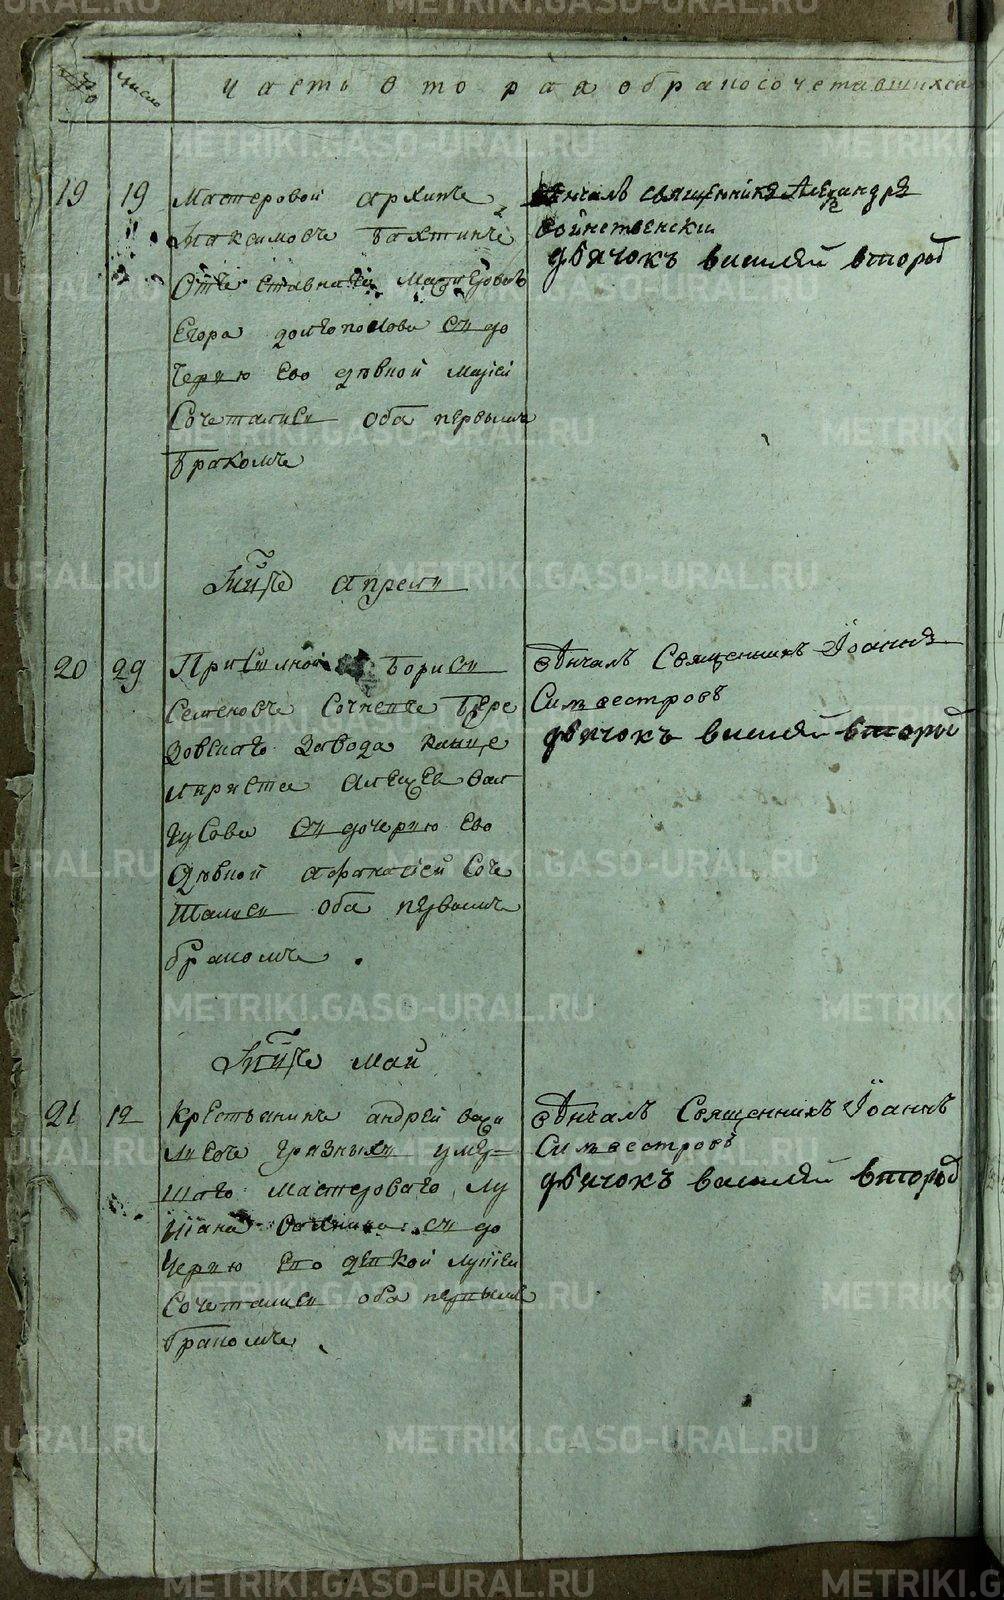 Число
часть вторая о браносочетавшихся
19 19 Мастеровой архипъ
Максимовъ Бахтинъ
Отъ ставнаго Мастероваго
Егора долгополова съ до
черью Его дѣвной Маріей
Сочетались оба первымъ
Бракомъ
Вѣнчалъ священникъ Александръ
Воинственски
дьячокъ василей второй
апреля
20 29 Присяжной Борись
Семеновъ Березовскаго завода
съ дочерью Его
дѣвной афанасіей Соче
тались оба первымъ
бракомъ .
Вѣнчалъ Священникъ Іоаннъ
Силвестровъ
дьячокъ василей второй
май
21 12 Крестьянинъ андрей васи
льевъ грязныхъ умер
шаго мастероваго лу
кіана съ до
черью Его дѣвкой
Сочетались оба первымъ
бракомъ
Вѣнчалъ Священникъ Іоаннъ
Силвестровъ
дьячокъ василей второй
METRIKI.GASO-URAL.RU